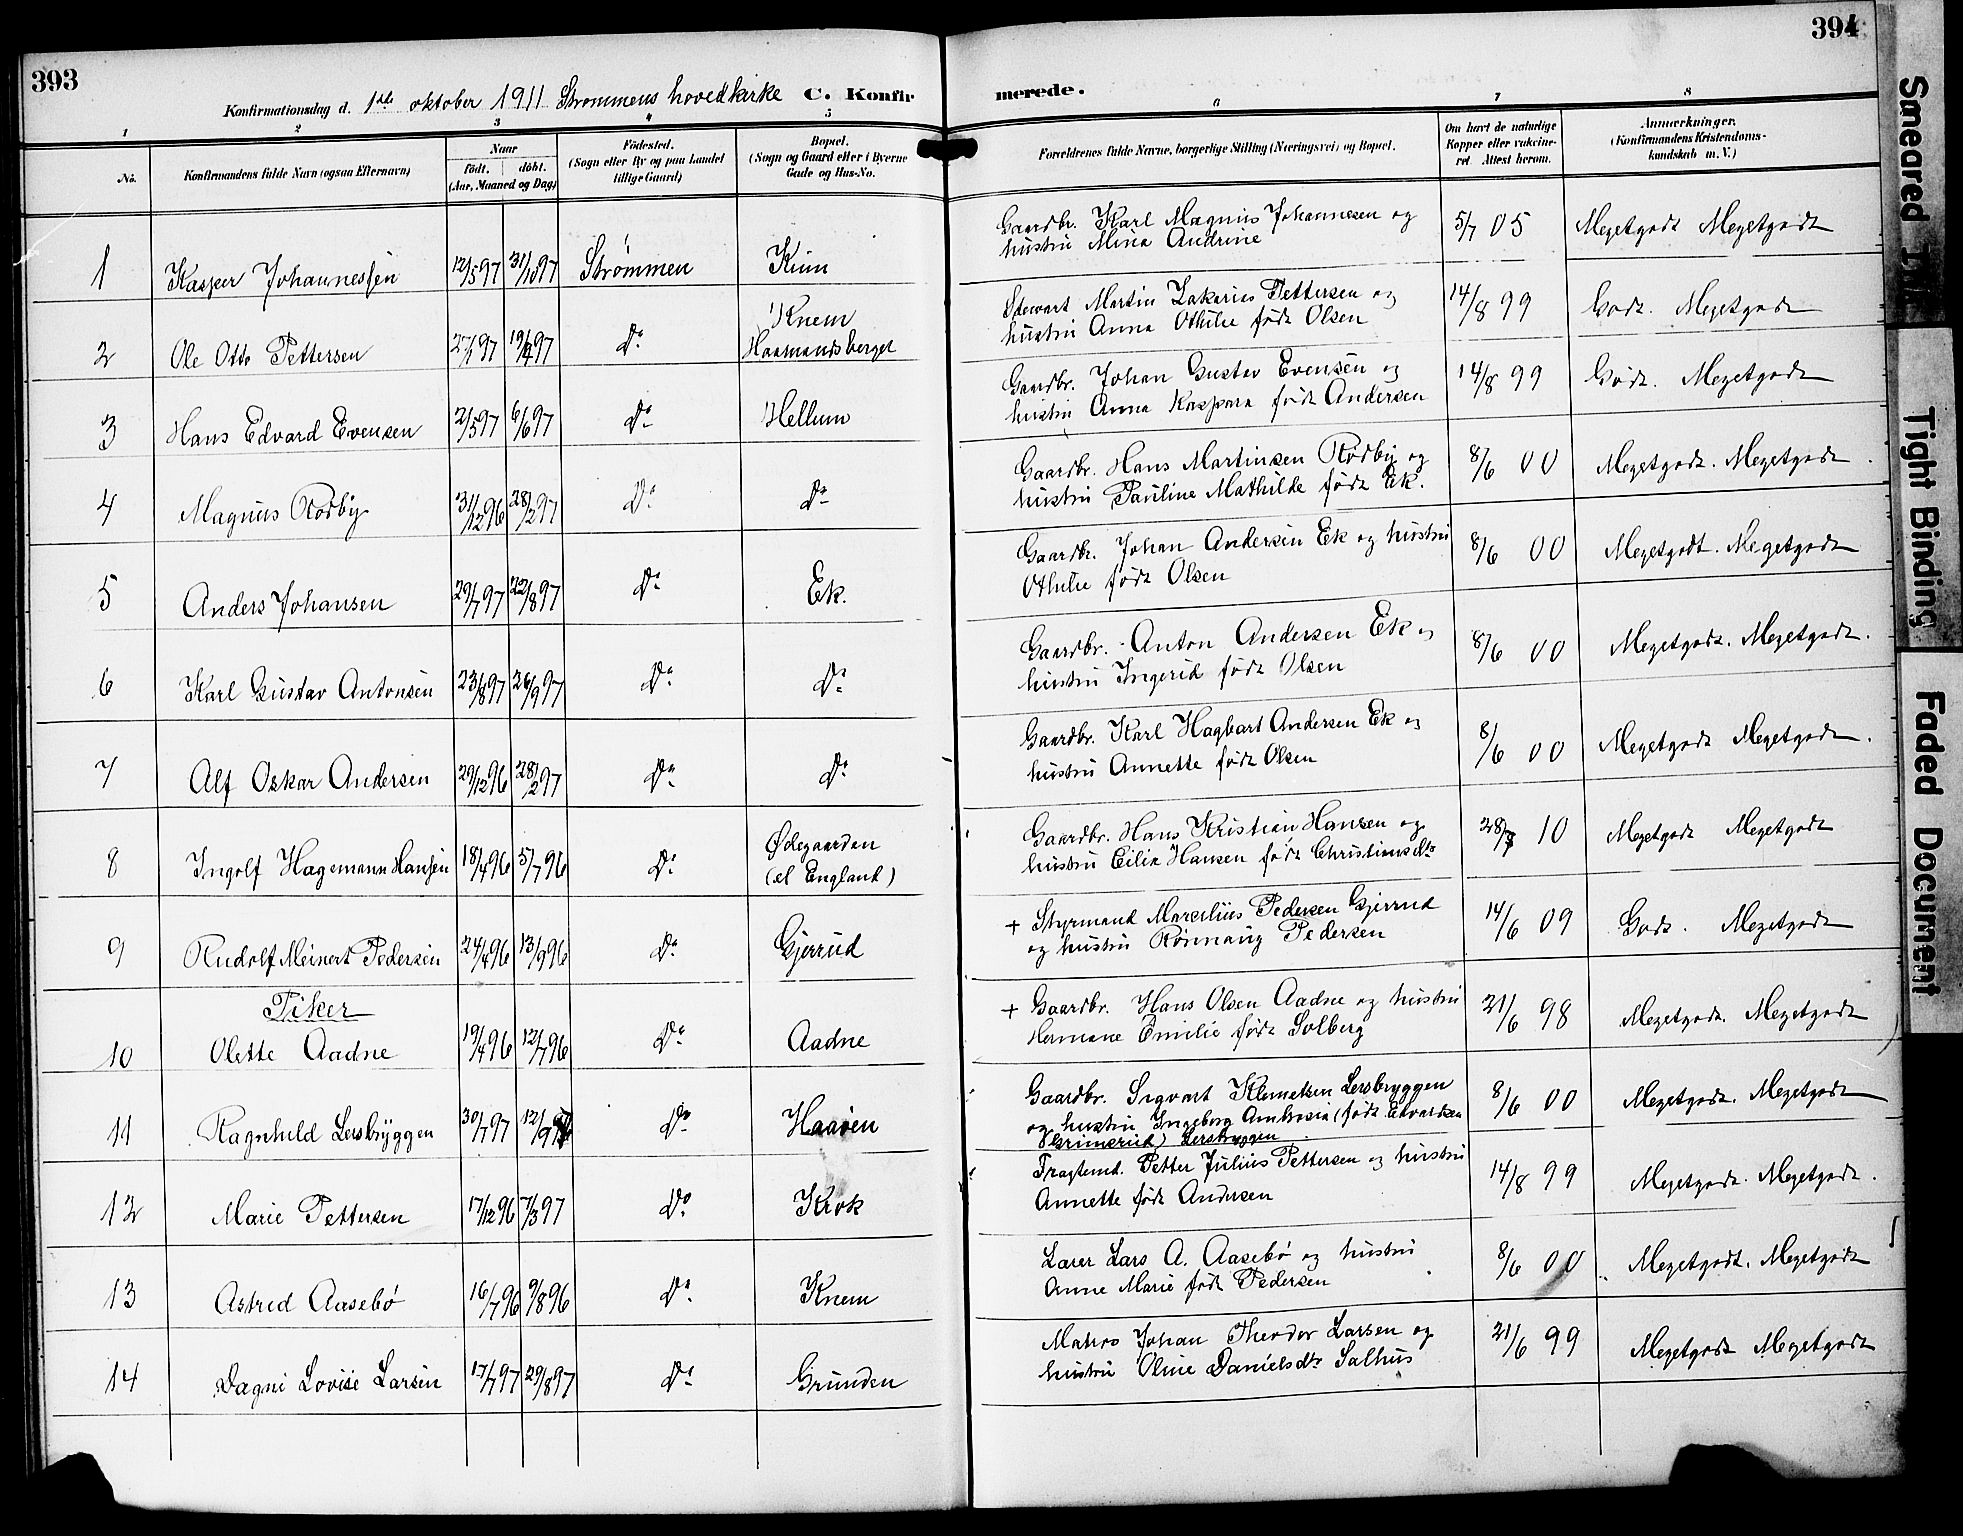 393
394
Konfirmationsdag d. 1ste oktober 1911 Strømmens hovedkirke C. Konfir
merede.
1 2 3 4 5 6 7 8
No.
Konfirmandens fulde Navn (ogsaa Efternavn)
Naar
født. døbt.
(Aar, Maaned og Dag)
Fødested.
(Sogn eller By og paa Landet
tillige Gaard)
Bopæl.
(Sogn og Gaard eller i Byerne
Gade og Hus-No.
Forældrenes fulde Navne, borgerlige Stilling (Næringsvei) og Bopæl.
Om havt de naturlige
Kopper eller vakcine-
ret. Attest herom.
Anmærkninger.
(Konfirmandens Kristendoms-
kundskab m. V.)
1 Kasper Johannessen 12/5 97 31/10 97 Strømmen Knem
Gaardbr. Karl Magnus Johannesen og
hustru Mina Andrine
5/7 05 Megetgodt Megetgodt
2 Ole Otto Pettersen 27/1 97 19/4 97 Do Knem
Haamandsberget
Stewart Martin Zakarias Pettersen og
hustru Anna Othilie født Olsen
14/8 99 Godt. Megetgodt
3 Hans Edvard Evensen 2/5 97 6/6 97 Do Hellum
Gaardbr. Johan Gustav Evensen og
hustru Anna Kaspara født Andersen
14/8 99 Godt. Megetgodt
4 Magnus Rødby 31/12 96 28/2 97 Do Do
Gaardbr. Hans Martinsen Rødby og
hustru Pauline Mathilde født Ek.
8/6 00 Megetgodt. Megetgodt.
5 Anders Johansen 29/7 97 22/8 97 Do Ek.
Gaardbr. Johan Andersen Ek og hustru
Othilie født Olsen
8/6 00 Megetgodt. Megetgodt
6 Karl Gustav Antonsen 23/8 97 26/9 97 Do Do
Gaardbr. Anton Andersen Ek og
hustru Ingerid født Olsen
8/6 00 Megetgodt. Megetgodt.
7 Alf Oskar Andersen 29/12 96 28/2 97 Do Do
Gaardbr. Karl Hagbart Andersen Ek og
hustru Annette født Olsen
8/6 00 Megetgodt Megetgodt.
8 Ingolf Hagemann Hansen 18/4 96 5/7 96 Do Ødegaarden
(el England)
Gaardbr. Hans Kristian Hansen og
hustru Eilia Hansen født Christiansdtr
28/7 10 Megetgodt Megetgodt
9 Rudolf Meinert Pedersen 24/4 96 13/9 96 Do Gjerrud
+ Styrmand Marselius Pedersen Gjerrud
og hustru Rønnaug Pedersen
14/6 09 Godt. Megetgodt
Piker
10 Olette Aadne 19/4 96 12/7 96 Do Aadne
+ Gaardbr. Hans Olsen Aadne og hustru
Hermane Emilie født Solberg
21/6 98 Megetgodt. Megetgodt
11 Ragnhild Lersbryggen 30/7 97 12/9 97 Do Haaven
Gaardbr. Sigvart Klemetsen Lersbryggen
og hustru Ingeborg Ambrosia (født Edvardsen
Grimsrud) Lersbryggen
8/6 00 Megetgodt. Megetgodt
12 Marie Pettersen 17/12 96 7/3 97 Do Krok
Fragtemd. Petter Julius Pettersen og hustru
Annette født Andersen
14/8 99 Megetgodt. Megetgodt.
13 Astrid Aasebø 16/7 96 9/8 96 Do Knem
Lærer Lars A. Aasebø og hustru
Anne Marie født Pedersen
8/6 00 Megetgodt. Megetgodt
14 Dagni Lovise Larsen 17/7 97 29/8 97 Do Grunden
Matros Johan Theodor Larsen og
hustru Oline Danielsdtr Salhus
21/6 99 Megetgodt Megetgodt
Smeared Ink
Tight Binding
Faded Document